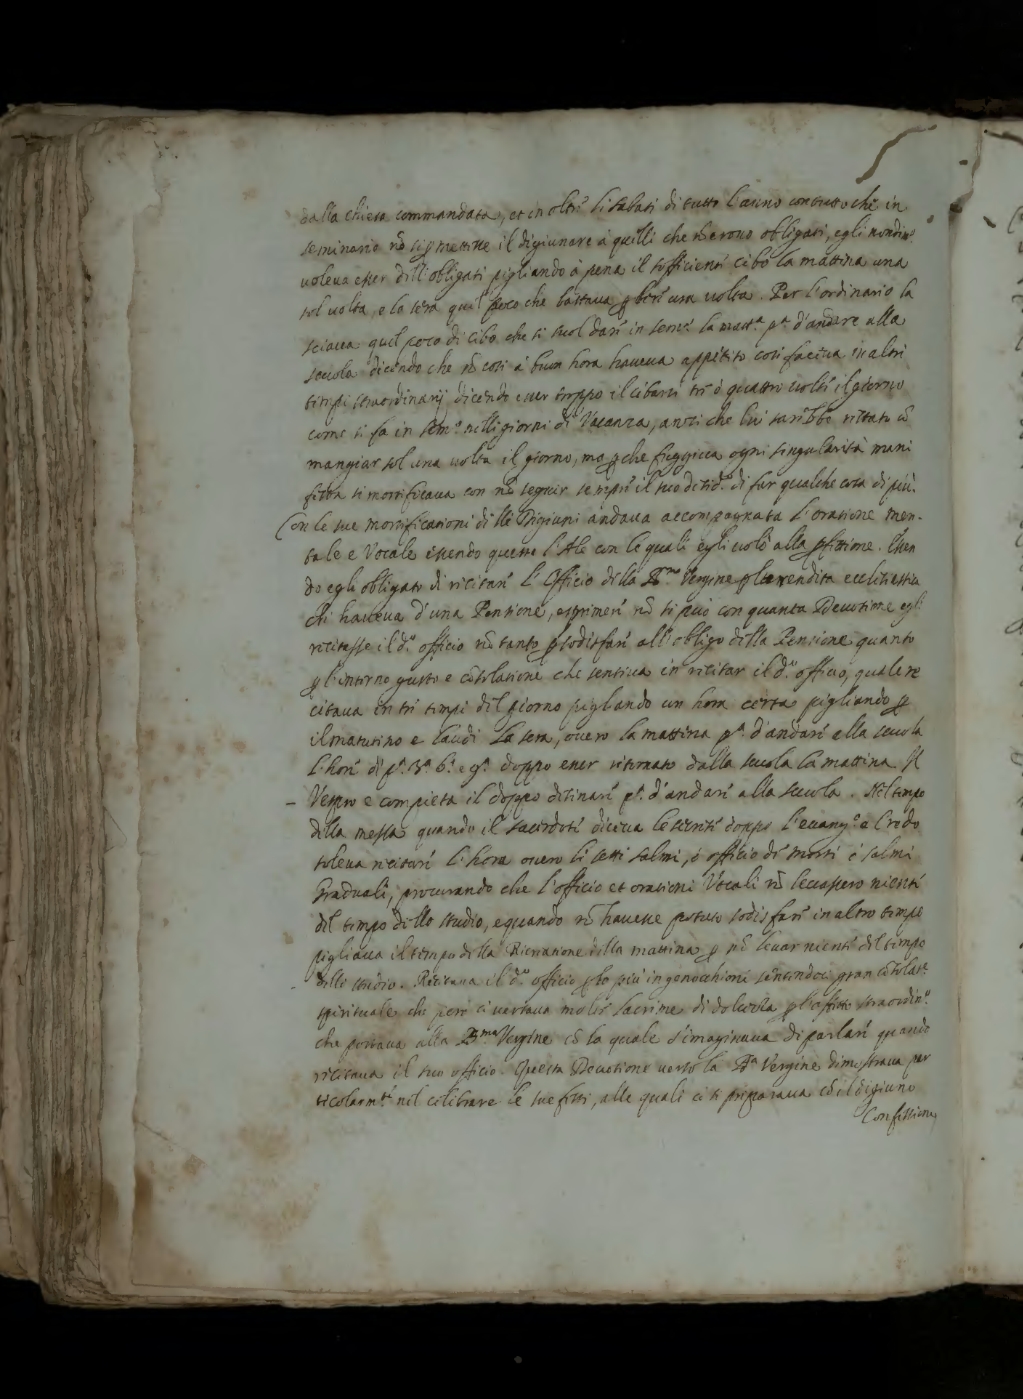 dalla chiesa commandata, et in oltre li sabati di tutto l'anno contutto che in
seminario nõ si ꝑmettesse il digiunare à quelli che nõ erono obligati, egli nondim.º
voleva esser dell'obligati pigliando à pena il sufficiente cibo la mattina una
sol volta, e la sera quel poco che bastava ꝑ bere una volta. Per l'ordinario la
sciava quel poco di cibo che si suol dare in sem.º la matt.ª pª d'andare alla
scuola dicendo che nõ cosi à buon hora haveva appetito cosi faceva in altri
tempi straordinarij dicendo esser troppo il cibarsi tre ò quattro volte il giorno
come si fa in sem.º nelli giorni di Vacanza, anzi che lui sarebbe restato cõ
mangiar sol una volta il giorno, ma ꝑche fuggiva ogni singularità mani
festa si mortificava con nõ seguir sempre il suo desid.º di far qualche cosa di più.
Con le sue mortificationi delli Digiuni andava accompagnata l'oratione Men-
tale e Vocale essendo queste l'Ale con le quali egli volò alla ꝑfettione. Essen
do egli obligato di recitare l'Officio della Bma Vergine ꝑ la rendita ecclesiasti
ca che haveva d'una Pensione, esprimere nõ si può con quanta Devotione egli
recitasse il d.º officio nõ tanto ꝑ sodisfare all'obligo della Pensione quanto
ꝑ l'interno gusto e cõsolatione che sentiva in recitar il d.º officio, quale re
citava in tre tempi del giorno pigliando un hora certa pigliando ꝑ
il matutino e laudi la sera, overo la mattina pª d'andare alla scuola
l'hore di pª. 3ª. 6ª. e 9ª. doppo esser ritornato dalla scuola la mattina Il
Vespro e compieta il doppo desinare pª d'andare alla scuola. Nel tempo
della messa quando il sacerdote diceva doppo l'evang.º e Credo
soleva recitare l'hora overo li setti salmi, ò officio de morti ò salmi
Graduali, procurando che l'officio et orationi Vocali nõ levassero niente
del tempo dello studio, e quando nõ havesse potuto sodisfare in altro tempo
pigliava il tempo della Ricreatione della mattina ꝑ nõ levar niente del tempo
dello studio. Recitava il d.º officio ꝑ lo più in genocchioni sentendoci gran cõsolat.ne
spirituale che però ci versava molte lacrime di dolcezza ꝑ l'affetto straordin.º
che portava alla Bma Vergine cõ la quale s'imaginava di parlare quando
recitava il suo officio. Questa Devotione verso la Bª Vergine dimostrava par
ticolarmte nel celebrare le sue feste, alle quali ci si preparava cõ il digiuno
Confessione